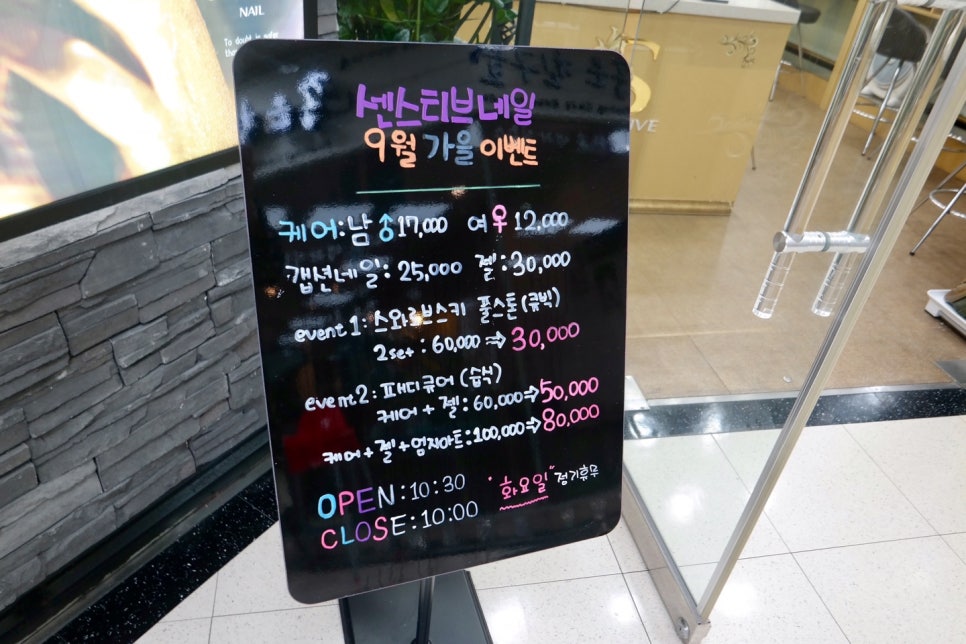 NAIL
To doubt is safer
센스티브네일
9월 가을 이벤트
케어:남♂17,000 여♀12,000
갭션네일:25,000 젤:30,000
event1:스와로브스키 풀스톤(큐빅)
2set:60,000⇒30,000
event2:패디큐어(습식)
케어+젤:60,000⇒50,000
케어+젤+엄지아트:100,000⇒80,000
OPEN:10:30 "화요일"정기휴무
CLOSE:10:00